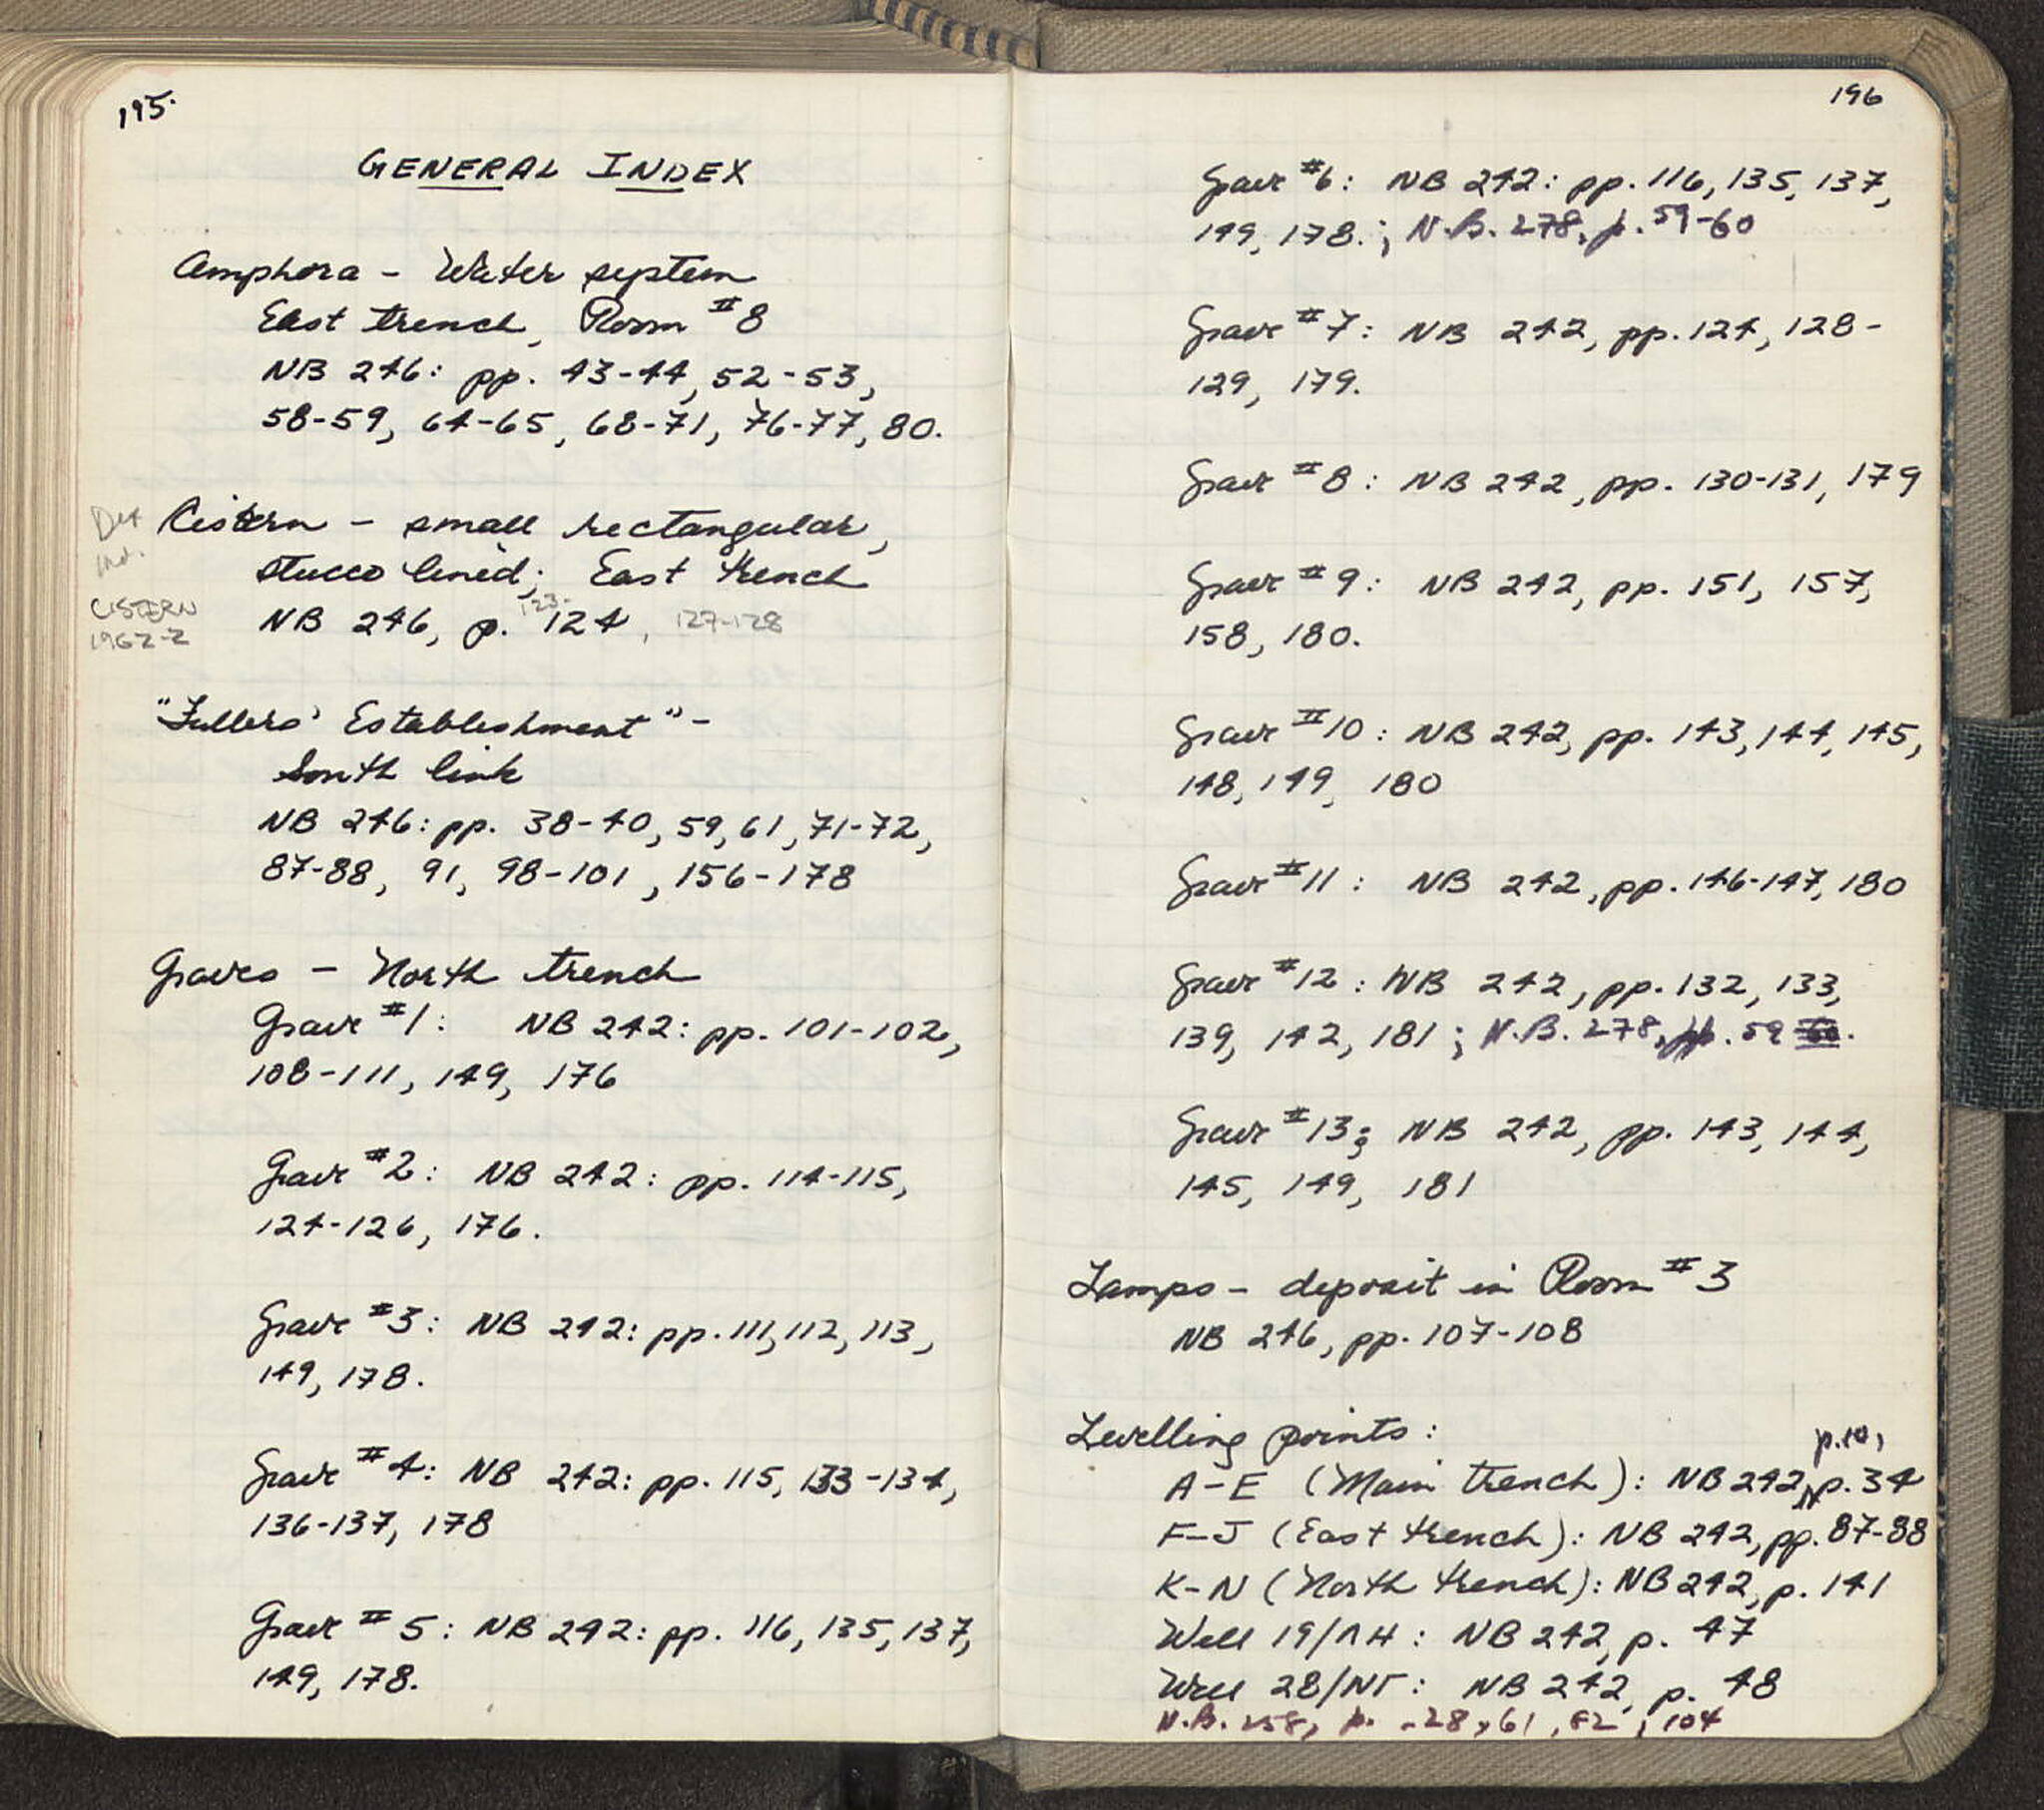 195.
GENERAL INDEX
Amphora - Water system
East trench, Room #8
NB 246: pp. 43-44, 52-53,
58-59, 64-65, 68-71, 76-77, 80.
Cistern - small rectangular,
stucco lined; East trench
NB 246, p. 123-124, 127-128
CISTERN
1962-2
"Fullers' Establishment" -
South link
NB 246: pp. 38-40, 59, 61, 71-72,
87-88, 91, 98-101, 156-178
Graves - North trench
Grave #1: NB 242: pp. 101-102,
108-111, 149, 176
Grave #2: NB 242: pp. 114-115,
124-126, 176.
Grave #3: NB 242: pp. 111, 112, 113,
149, 178.
Grave #4: NB 242: pp. 115, 133-134,
136-137, 178
Grave #5: NB 242: pp. 116, 135, 137,
149, 178.
196
Grave #6: NB 242: pp. 116, 135, 137,
149, 178.; N.B. 278, p. 59-60
Grave #7: NB 242, pp. 124, 128-
129, 179.
Grave #8: NB 242, pp. 130-131, 179
Grave #9: NB 242, pp. 151, 157,
158, 180.
Grave #10: NB 242, pp. 143, 144, 145,
148, 149, 180
Grave #11: NB 242, pp. 146-147, 180
Grave #12: NB 242, pp. 132, 133,
139, 142, 181; N.B. 278, p. 59
Grave #13: NB 242, pp. 143, 144,
145, 149, 181
Lamps - deposit in Room #3
NB 246, pp. 107-108
Levelling points:
A-E (Main trench): NB 242, p. 10, p. 34
F-J (East trench): NB 242, pp. 87-88
K-N (North trench): NB 242, p. 141
Well 19/ΛΗ: NB 242, p. 47
Well 28/ΝΓ: NB 242, p. 48
N.B. 258, p. 28, 61, 82, 104